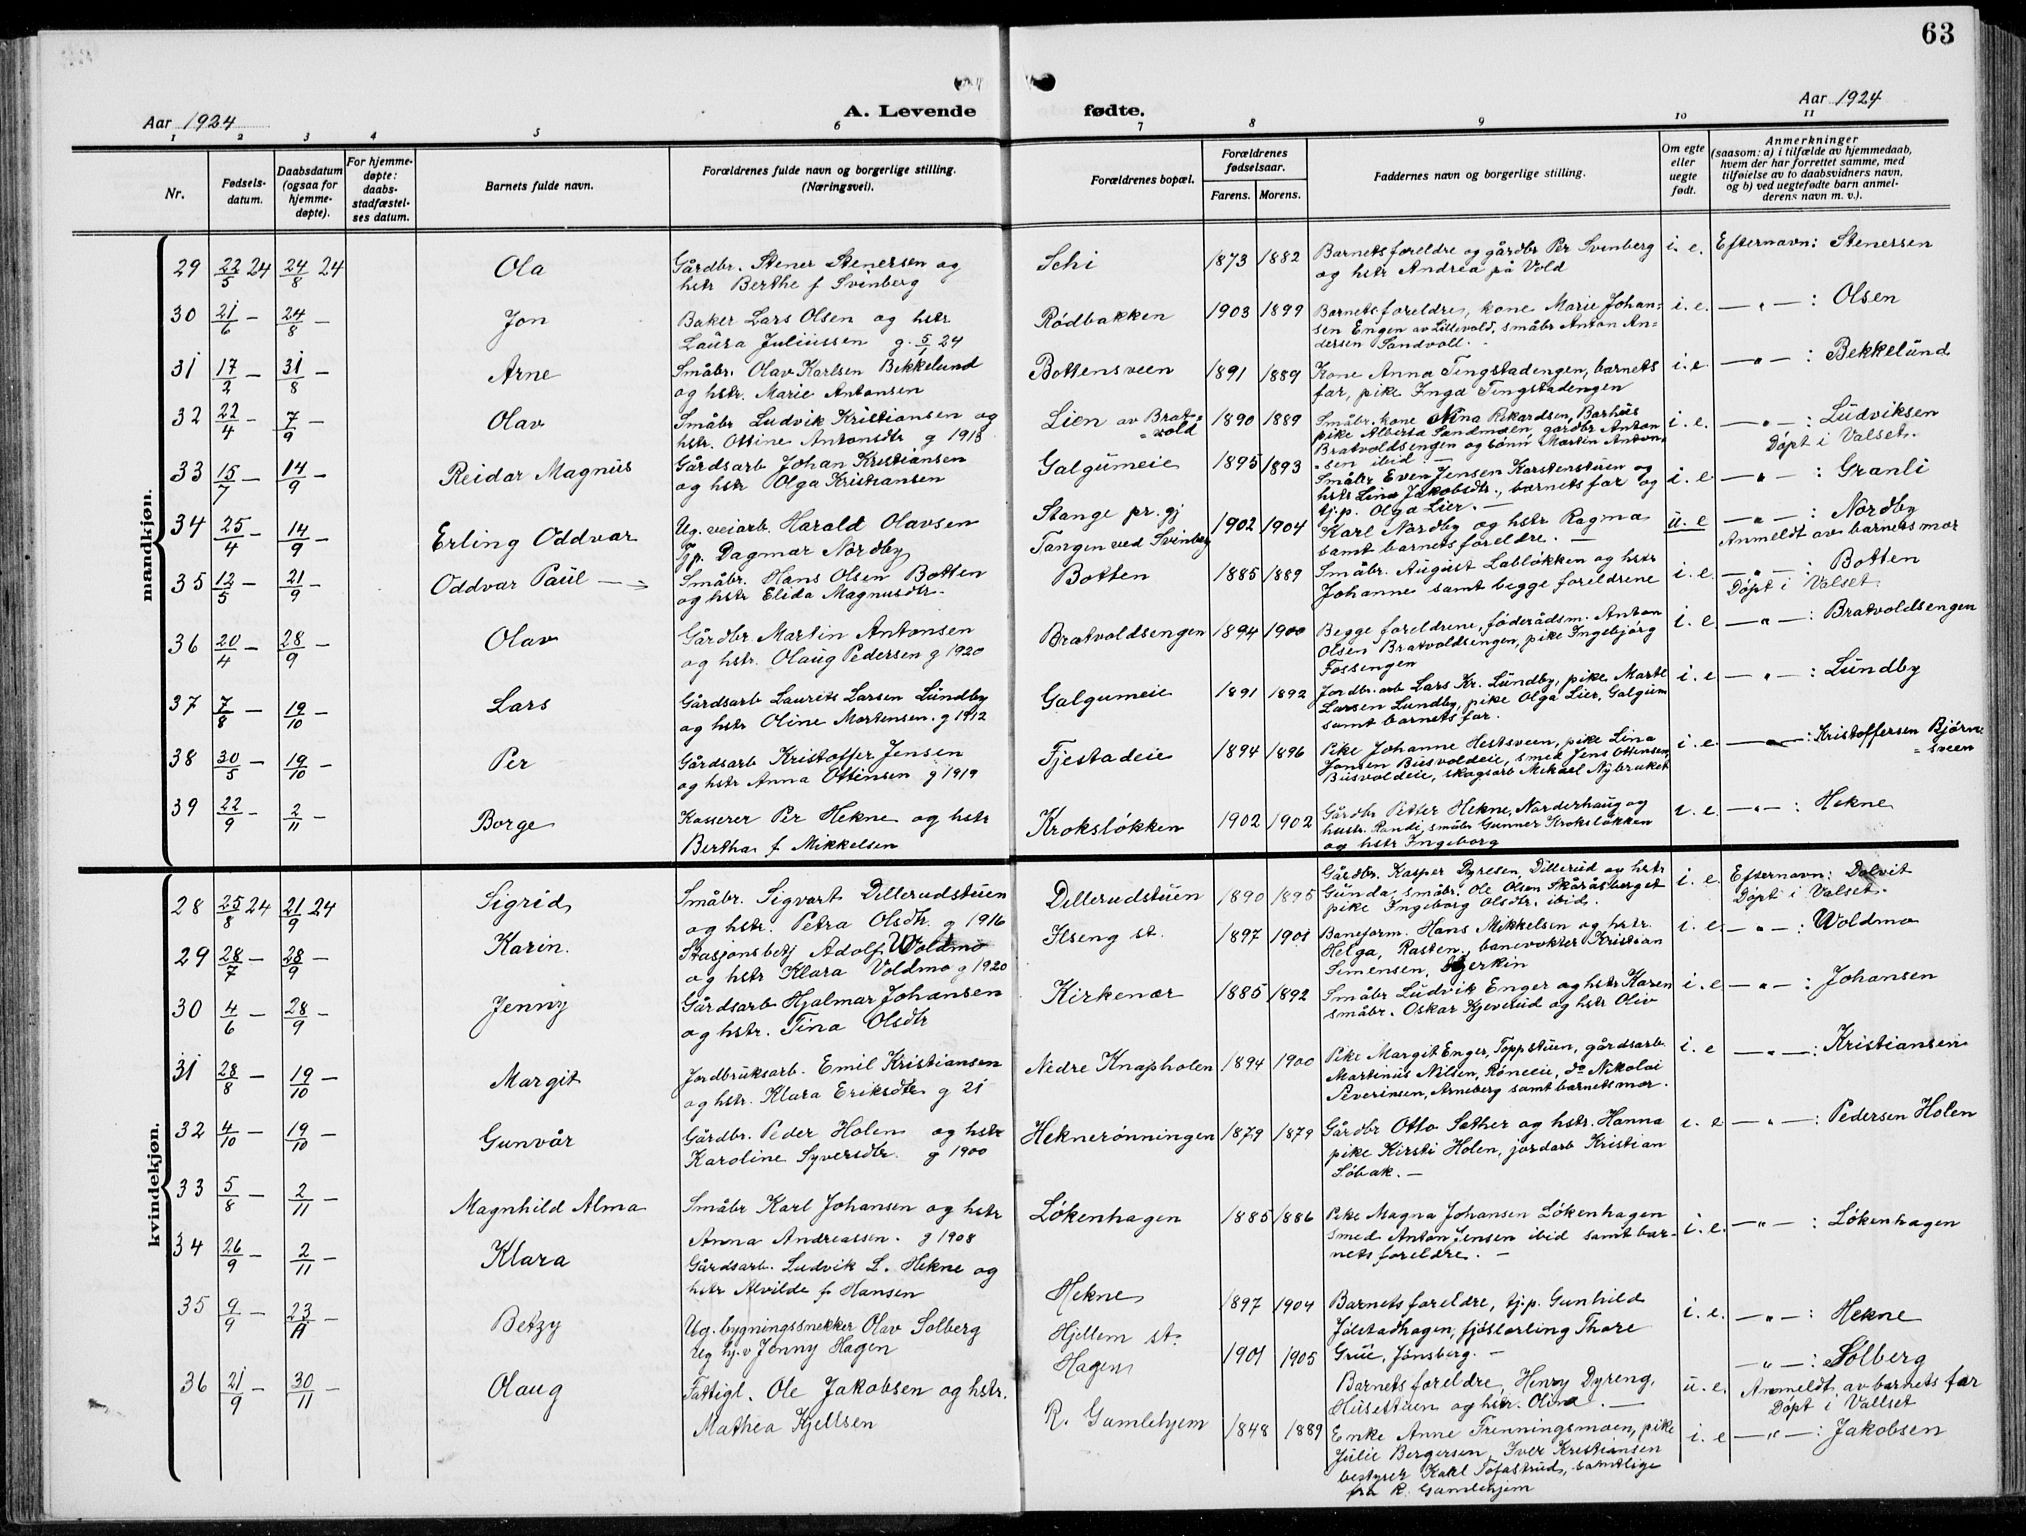 63
Aar 1924
A. Levende fødte.
Aar 1924
1 2 3 4 5 6 7 8 9 10 11
Nr.
Fødsels-
datum.
Daabsdatum
(ogsaa for
hjemme-
døpte).
For hjemme-
døpte:
daabs-
stadfæstel-
ses datum.
Barnets fulde navn.
Forældrenes fulde navn og borgerlige stilling.
(Næringsvei).
Forældrenes bopæl.
Forældrenes
fødselsaar.
Farens. Morens.
Faddernes navn og borgerlige stilling.
Om egte
eller
uegte
født.
Anmerkninger
(saasom: a) i tilfælde av hjemmedaab,
hvem der har forrettet samme, med
tilføielse av to daabsvidners navn,
og b) ved uegtefødte barn anmel-
derens navn m. v.).
mandkjøn.
29 22/5 24 24/8 24 Ola
Gårdbr. Stener Stenersen og
hstr Berthe f Svinberg
Schi 1873 1882
Barnets foreldre og gårdbr Per Svinberg
og hstr Andrea på Vold
i. e. Efternavn: Stenersen
30 21/6 — 24/8 — Jon
Baker Lars Olsen og hstr
Laura Juliussen g. 5/1 24
Rødbakken 1903 1899
Barnets foreldre, kone Marie Johan-
sen Engen av Lillevold, småbr Anton An-
dersen Sandvoll.
i. e. — " — : Olsen
31 17/2 — 31/8 — Arne
Småbr. Olav Karlsen Bekkelund
og hstr. Marie Antonsen
Bottensveen 1891 1889
Kone Anna Tingstadengen, barnets
far, pike Inga Tingstadengen
i. e. — " — : Bekkelund
32 22/4 — 7/9 — Olav
Småbr Ludvik Kristiansen og
hstr. Ottine Antonsdtr g 1918
Lien av Brat-
vold 1890 1889
Småbr. kone Nina Rikardsen, Barhus
pike Alberta Sandmoen, gårdbr Anton
Bratvoldsengen og sønn Martin Anton-
sen ibid. —
i. e. — " — : Ludviksen
Døpt i Valset.
33 15/7 — 14/9 — Reidar Magnus
Gårdsarb Johan Kristiansen
og hstr Olga Kristiansen
Galgumeie 1895 1893
Småbr Even Jensen Karstenstuen og
hstr Lina Jakobsdtr., barnets far og
tj.p. Olga Lier. —
i. e — " — : Granli
34 25/4 — 14/9 — Erling Oddvar
Ug. veiarb. Harald Olavsen
Tj p. Dagmar Nordby
Stange pr. gj
Tangen ved Svinberg 1902 1904
Karl Nordby og hstr Ragna
samt barnets foreldre. —
u. e — " — : Nordby
Anmeldt av barnets mor
35 12/5 — 21/9 — Oddvar Paul
Småbr. Hans Olsen Botten
og hstr Elida Magnusdtr.
Botten 1885 1889
Småbr. August Labløkken og hstr
Johanne samt begge foreldrene
i. e. — " — : Botten
Døpt i Valset
36 20/4 — 28/9 — Olav
Gårdbr. Martin Antonsen
og hstr. Olaug Pedersen g 1920
Bratvoldsengen 1894 1900
Begge foreldrene, føderådsm. Anton
Olsen Bratvoldsengen, pike Ingebjørg
Fossengen
i. e. — " — : Bratvoldsengen
37 7/8 — 19/10 — Lars
Gårdsarb Laurits Larsen Lundby
og hstr Oline Mortensen. g 1912
Galgumeie 1891 1892
Jordbr. arb Lars Kr. Lundby, pike Marte
Larsen Lundby, pike Olga Lier, Galgum
samt barnets far.
i. e — " — : Lundby
38 30/5 — 19/10 — Per
Gårdsarb Kristoffer Jensen
og hstr Anna Ottinsen g 1919
Fjestadeie 1894 1896
Pike Johanne Hestsveen, pike Lina
Jonsen Busvoldeie, smed Jens Ottensen
Busvoldeie, skogsarb Mikael Nybruket
i. e. — " — : Kristoffersen Bjørn-
sveen
39 22/9 — 2/11 — Borge
Kasserer Per Hekne og hstr
Bertha f Mikkelsen
Kroksløkken 1902 1902
Gårdbr Petter Hekne, Norderhaug og
hustr. Randi, småbr Gunner Kroksløkken
og hstr Ingeborg
i. e. — " — : Hekne
kvindekjøn.
28 25/8 24 21/9 24 Sigrid
Småbr. Sigvart Dillerudstuen
og hstr. Petra Olsdtr. g 1916
Dillerudstuen 1890 1895
Gårdbr. Kasper Dyresen, Dillerud og hstr
Gunda, småbr. Ole Olsen Skåråsberget
pike Ingeborg Olsdtr. ibid.
i. e. Efternavn: Dalvit
Døpt i Valset.
29 28/7 — 28/9 — Karin.
Stasjonsbetj Adolf Woldmo
og hstr Klara Voldmo g 1920
Ilseng st. 1897 1901
Baneform. Hans Mikkelsen og hstr.
Helga, Rasten, banevokter Kristian
Simensen, Hjerkin
i. e — " — : Woldmo
30 4/6 — 28/9 — Jenny
Gårdsarb Hjalmar Johansen
og hstr. Tina Olsdtr
Kirkenær 1885 1892
Småbr Ludvik Enger og hstr Karen
småbr. Oskar Kjeverud og hstr Oliv
i. e — " — : Johansen
31 28/8 — 19/10 — Margit
Jordbruksarb. Emil Kristiansen
og hstr. Klara Eriksdtr g 21
Nedre Knapholen 1894 1900
Pike Margit Enger, Toppstuen, gårdsarb
Martinus Nilsen, Røneeie, do Nikolai
Severinsen, Arneberg samt barnets mor.
i. e — " — : Kristiansen
32 4/10 — 19/10 — Gunvår
Gårdbr. Peder Holen og hstr
Karoline Syversdtr. g 1900
Heknerønningen 1879 1879
Gårdbr Otto Sæther og hstr. Hanna
pike Kirsti Holen, jordarb Kristian
Søbak. —
i. e — " — : Pedersen Holen
33 5/8 — 2/11 — Magnhild Alma
Småbr Karl Johansen og hstr
Anna Andreassen. g 1908
Løkenhagen 1885 1886
Pike Magna Johansen Løkenhagen
smed Anton Jensen ibid samt bar-
nets foreldre. —
i. e. — " — : Løkenhagen
34 26/9 — 2/11 — Klara
Gårdsarb. Ludvik L. Hekne og
hstr Alvilde f Hansen
Hekne 1897 1904
Barnets foreldre, tj.p. Gunhild
Jølstadhagen, fjøslærling Thore
Grue, Jønsberg. —
i. e. — " — : Hekne
35 9/9 — 23/11 — Betzy
Ug. bygningssnekker Olav Solberg
Ug hj. v Jenny Hagen
Hjellem st.
Hagen 1901 1905
Barnets foreldre, Henry Dyreng,
Husestuen og hstr. Olina. —
u. e. — " — : Solberg
Anmeldt av barnets far
Døpt i Vallset
36 21/9 — 30/11 — Olaug
Fattigl. Ole Jakobsen og hstr.
Mathea Kjellsen
R. Gamlehjem 1848 1889
Enke Anne Trenningsmoen, pike
Julie Bergersen, Iver Kristiansen
bestyrer Karl Tofastrud, samtlige
fra R. Gamlehjem
i. e — " — : Jakobsen